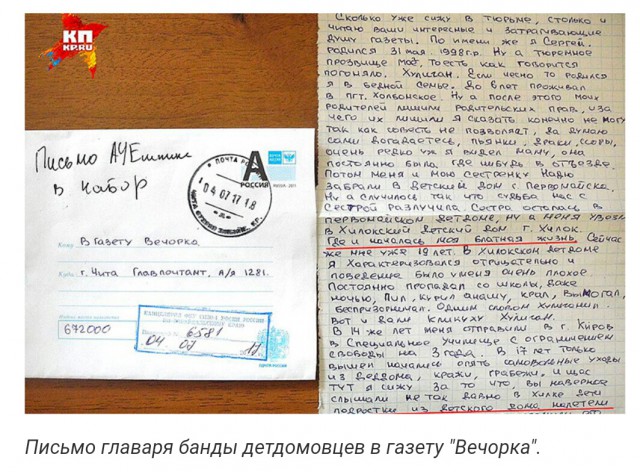 КП
KP.RU
Письмо АУЕшника
в набор
ПОЧТА РОССИИ
04 07 17 18
А
РОССИЯ
Кому В Газету Вечорка.
Куда г. Чита Главпочтамт, А/я 1281.
672000
6581
04 07
Сколько уже сижу в тюрьме, столько и
читаю ваши интересные и затрагивающие
душу газеты. По имени же я Сергей.
Родился 31 мая 1998г.р. Ну а тюремное
прозвище моё, тоесть как говорится
погоняло. Хулиган. Если чесно то родился
я в бедной семье. До 6лет проживал
в пгт. Холбонское. Ну а после этого моих
родителей лишили родительских прав, из за
чего их лишили я сказать конечно не могу
так как совесть не позволяет, да думаю
сами догадаетесь, пьянки, драки, ссоры,
очень редко уж я видел маму, она
постоянно была где нибудь в отъезде.
Потом меня и мою сестренку Надю
забрали в детский дом с Первомайска.
Ну а случилось так что судьба нас с
сестрой разлучила. Сестра осталась в
первомайском детдоме, ну а меня увезли
в Хилокский детский дом г. Хилок.
Где и началась моя блатная жизнь. Сейчас
же мне уже 19 лет. В Хилокском детдоме
я характеризовался отрицательно и
поведение было у меня очень плохое.
Постоянно пропадал со школы, даже
ночью, пил, курил анашу, крал, вымогал,
беспризорничал. Одним словом хулиганил.
Вот и дали кликуху Хулиган.
В 14 же лет меня отправили в г. Киров
в Специальное Училище с ограничением
свободы на 3 года. В 17 лет только
вышел начались опять самовольные уходы
из детдома, кражи, грабежи. И щас
тут я сижу за то что, вы наверное
слышали не так давно в Хилке дети
подростки из детского дома налетели
Письмо главаря банды детдомовцев в газету "Вечорка".